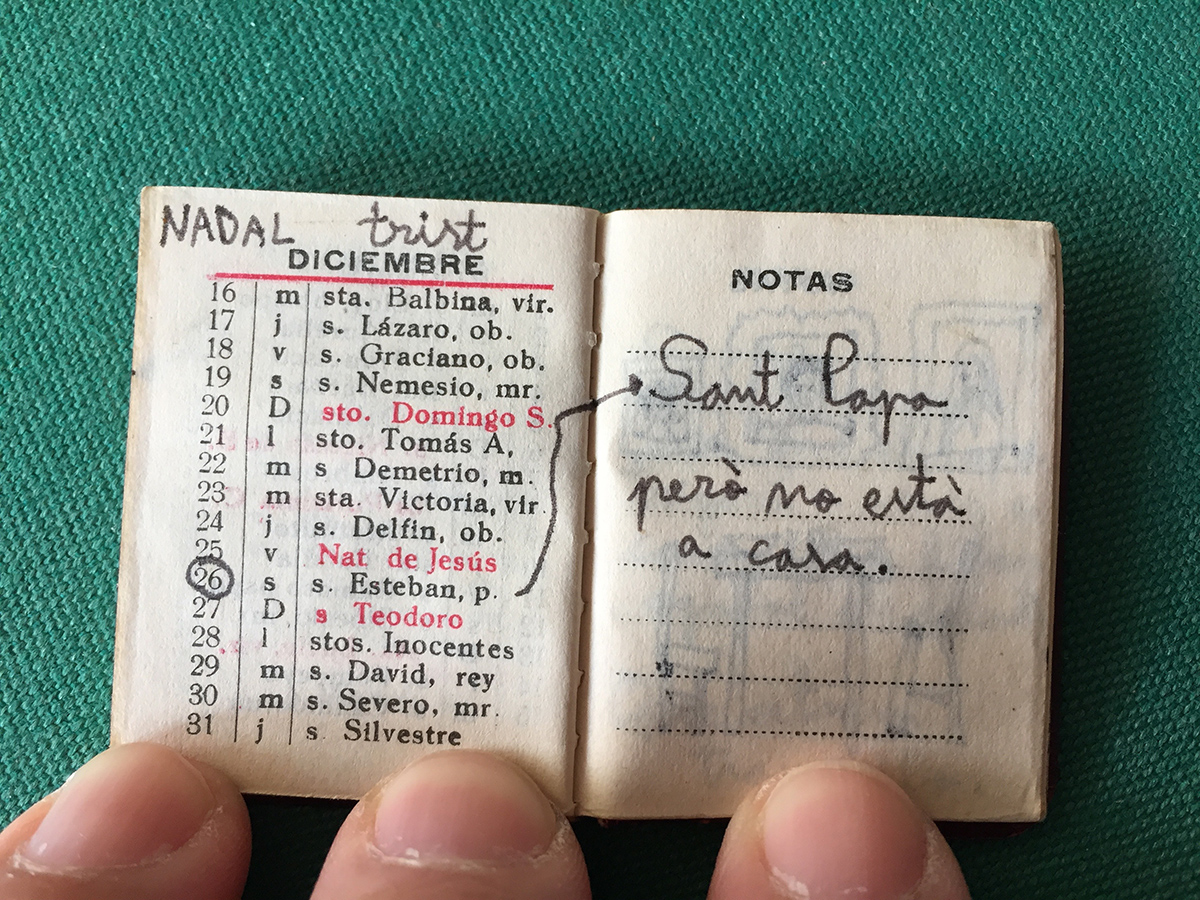 NADAL trist
DICIEMBRE
16 m sta. Balbina, vir.
17 j s. Lázaro, ob.
18 v s. Graciano, ob.
19 s s. Nemesio, mr.
20 D sto. Domingo S.
21 l sto. Tomás A,
22 m s Demetrio, m.
23 m sta. Victoria, vir
24 j s. Delfin, ob.
25 v Nat de Jesús
26 s s. Esteban, p.
27 D s Teodoro
28 l stos. Inocentes
29 m s. David, rey
30 m s. Severo, mr.
31 j s Silvestre
NOTAS
Sant Papa
però no està
a casa.